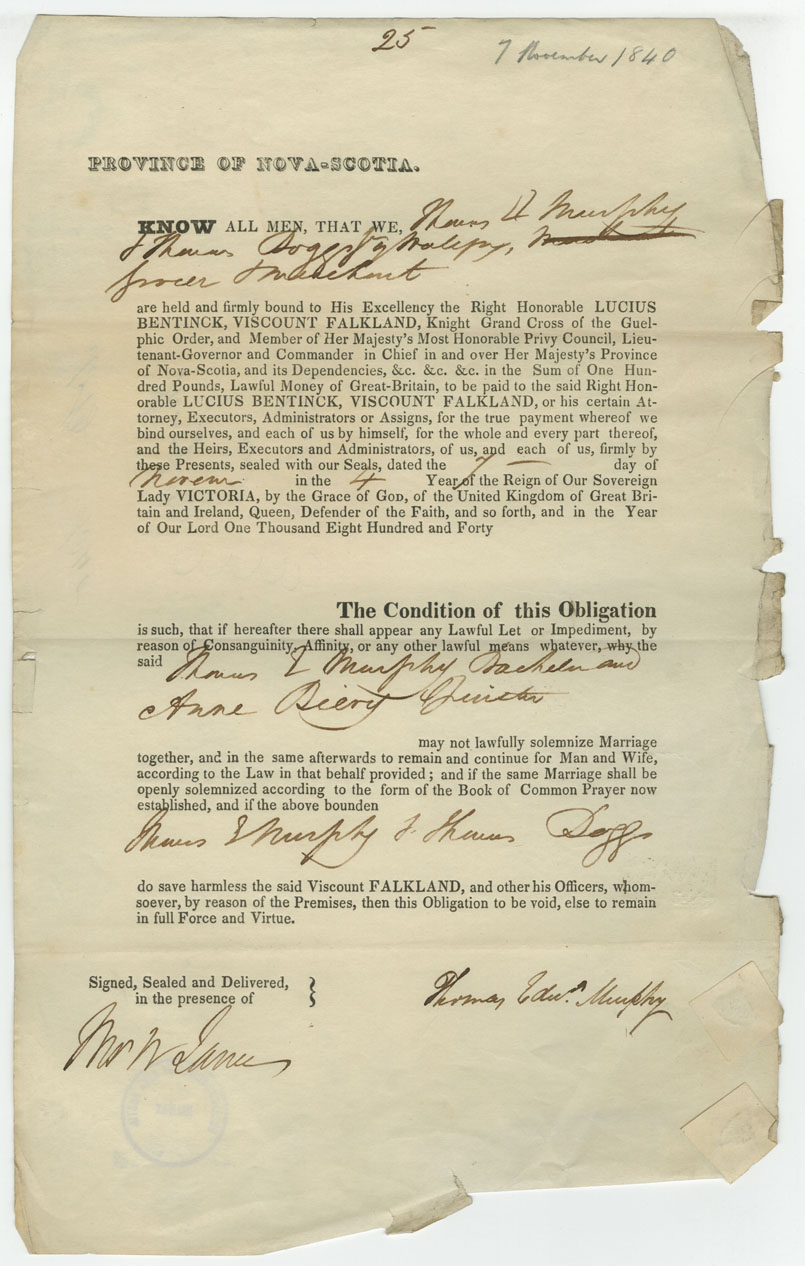 25
7 November 1840
PROVINCE OF NOVA-SCOTIA.
KNOW ALL MEN, THAT WE, Thomas E Murphy
& Thomas Doggs of Halifax,
Grocer & Merchant
are held and firmly bound to His Excellency the Right Honorable LUCIUS
BENTINCK, VISCOUNT FALKLAND, Knight Grand Cross of the Guel-
phic Order, and Member of Her Majesty's Most Honorable Privy Council, Lieu-
tenant-Governor and Commander in Chief in and over Her Majesty's Province
of Nova-Scotia, and its Dependencies, &c. &c. &c. in the Sum of One Hun-
dred Pounds, Lawful Money of Great-Britain, to be paid to the said Right Hon-
orable LUCIUS BENTINCK, VISCOUNT FALKLAND, or his certain At-
torney, Executors, Administrators or Assigns, for the true payment whereof we
bind ourselves, and each of us by himself, for the whole and every part thereof,
and the Heirs, Executors and Administrators, of us, and each of us, firmly by
these Presents, sealed with our Seals, dated the 7 — day of
Novem in the 4 Year of the Reign of Our Sovereign
Lady VICTORIA, by the Grace of GOD, of the United Kingdom of Great Bri-
tain and Ireland, Queen, Defender of the Faith, and so forth, and in the Year
of Our Lord One Thousand Eight Hundred and Forty
The Condition of this Obligation
is such, that if hereafter there shall appear any Lawful Let or Impediment, by
reason of Consanguinity, Affinity, or any other lawful means whatever, why the
said Thomas E Murphy Bachelor and
Anne Spinster
may not lawfully solemnize Marriage
together, and in the same afterwards to remain and continue for Man and Wife,
according to the Law in that behalf provided; and if the same Marriage shall be
openly solemnized according to the form of the Book of Common Prayer now
established, and if the above bounden
Thomas E Murphy & Thomas Doggs
do save harmless the said Viscount FALKLAND, and other his Officers, whom-
soever, by reason of the Premises, then this Obligation to be void, else to remain
in full Force and Virtue.
Signed, Sealed and Delivered,
in the presence of
Thomas Edwd. Murphy